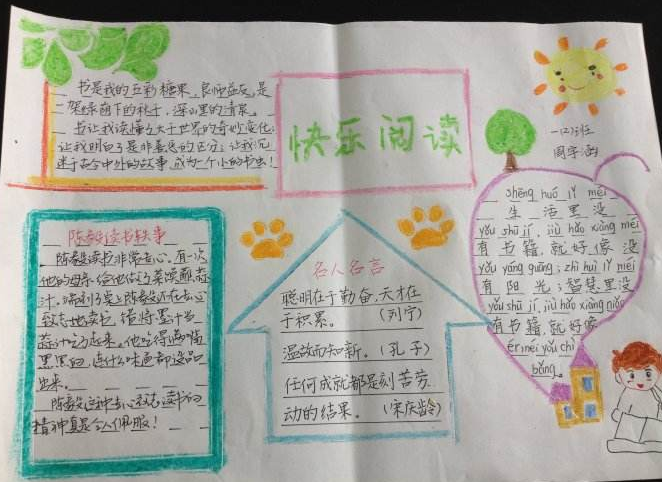 书是我的五彩糖果、良师益友,是
一架绿荫下的秋千,深山里的清泉。
书让我读懂了大千世界的奇妙变化;
让我明白了是非善恶的区分;让我沉
迷于古今中外的故事,成为一个小的书虫!
快乐阅读
一(2)班
陈毅读书轶事
陈毅读书非常专心,有一次
他的母亲给他做了菜馍蘸蒜
汁,端到桌上陈毅还在专心
致志地读书,错将墨汁当
蒜汁吃了起来。他吃得满嘴
黑黑的,连什么味道都没品
出来。
陈毅这种专心致志读书的
精神真是令人佩服!
名人名言
聪明在于勤奋,天才在
于积累。 (列宁)
温故而知新。(孔子)
任何成就都是刻苦劳
动的结果。(宋庆龄)
shēng huó lǐ méi
生活里没
yǒu shū jí, jiù hǎo xiàng méi
有书籍,就好像没
yǒu yáng guāng; zhì huì lǐ méi
有阳光;智慧里没
yǒu shū jí, jiù hǎo xiàng niǎo
有书籍,就好像
ér méi yǒu chì
bǎng。